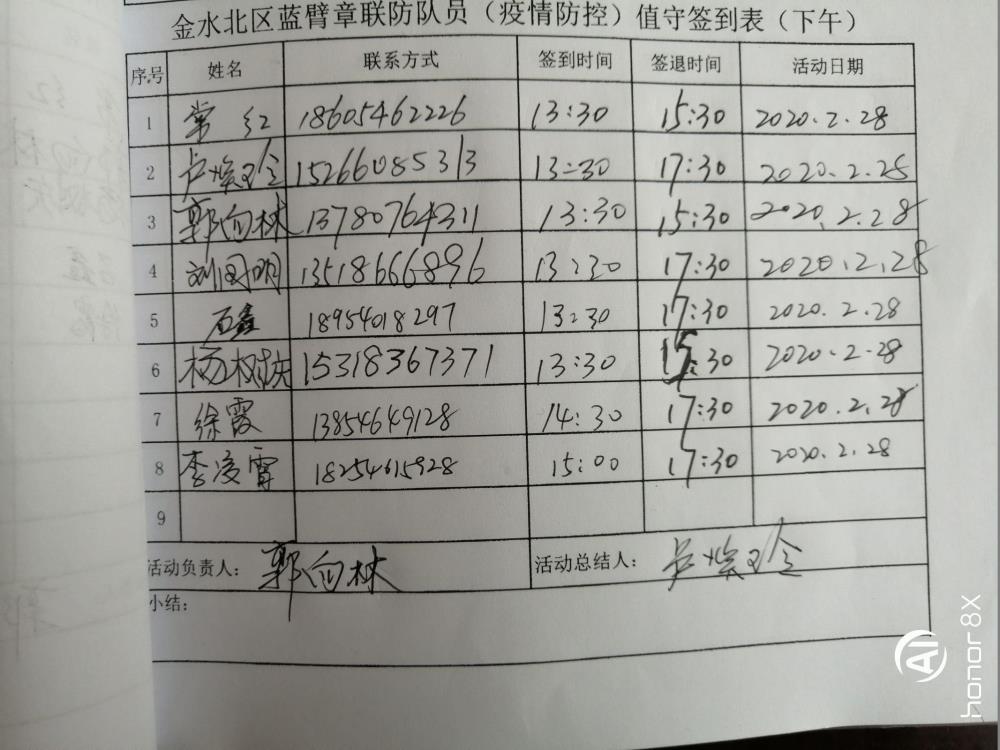 金水北区蓝臂章联防队员（疫情防控）值守签到表（下午）
序号 姓名 联系方式 签到时间 签退时间 活动日期
1 常红 18605462226 13:30 15:30 2020.2.28
2 卢焕玲 15266085313 13:30 17:30 2020.2.28
3 郭向林 13780764311 13:30 15:30 2020.2.28
4 刘国明 13518666896 13:30 17:30 2020.2.28
5 石鑫 18954018297 13:30 17:30 2020.2.28
6 杨树 15318367371 13:30 15:30 2020.2.28
7 徐霞 13854649128 14:30 17:30 2020.2.28
8 李凌霄 18254615928 15:00 17:30 2020.2.28
9
活动负责人： 郭向林 活动总结人： 卢焕玲
小结：
AI
honor 8X